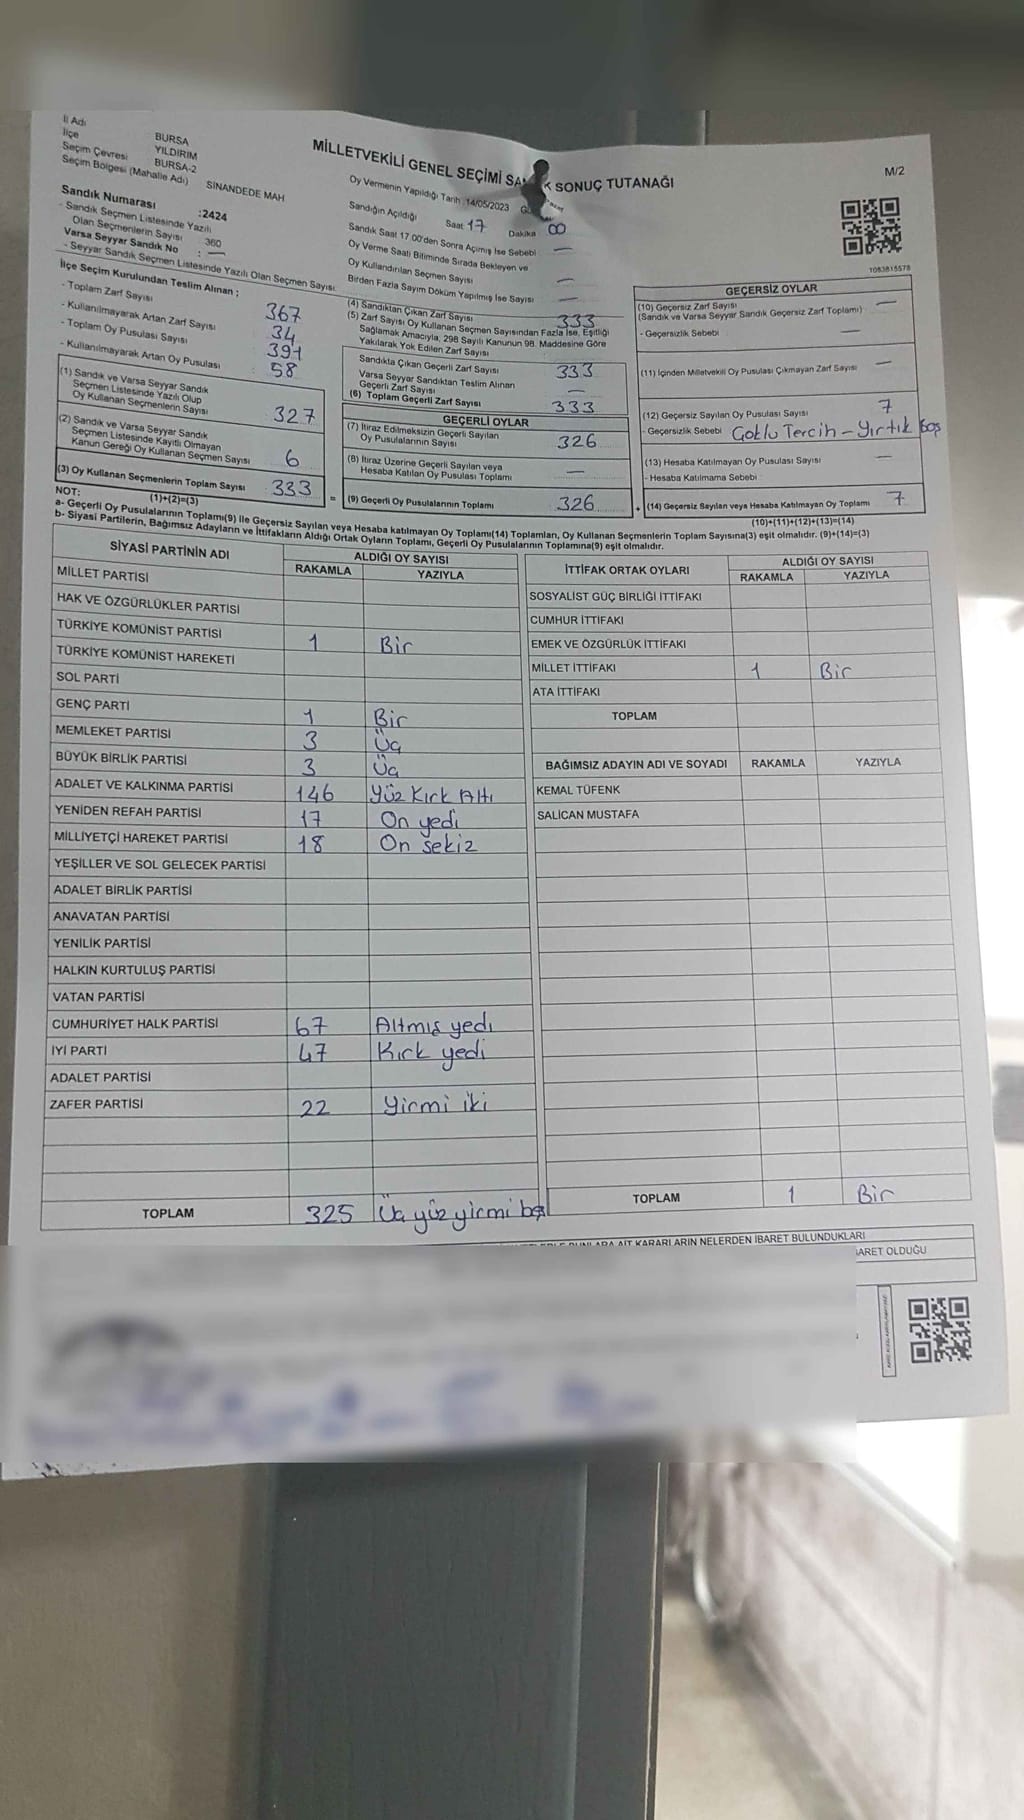 İl Adı
İlçe BURSA
Seçim Çevresi YILDIRIM
Seçim Bölgesi (Mahalle Adı) BURSA-2
SİNANDEDE MAH
MİLLETVEKİLİ GENEL SEÇİMİ SONUÇ TUTANAĞI
M/2
Oy Vermenin Yapıldığı Tarih :14/05/2023
Sandığın Açıldığı Saat 17 Dakika 00
Sandık Saat 17.00'den Sonra Açımış İse Sebebi —
Oy Verme Saati Bitiminde Sırada Bekleyen ve
Oy Kullandırılan Seçmen Sayısı —
Birden Fazla Sayım Döküm Yapılmış İse Sayısı —
1083815578
Sandık Numarası :2424
- Sandık Seçmen Listesinde Yazılı
Olan Seçmenlerin Sayısı 360
Varsa Seyyar Sandık No : —
- Seyyar Sandık Seçmen Listesinde Yazılı Olan Seçmen Sayısı
İlçe Seçim Kurulundan Teslim Alınan ;
- Toplam Zarf Sayısı 367
- Kullanılmayarak Artan Zarf Sayısı 34
- Toplam Oy Pusulası Sayısı 391
- Kullanılmayarak Artan Oy Pusulası 58
(1) Sandık ve Varsa Seyyar Sandık
Seçmen Listesinde Yazılı Olup
Oy Kullanan Seçmenlerin Sayısı 327
(2) Sandık ve Varsa Seyyar Sandık
Seçmen Listesinde Kayıtlı Olmayan
Kanun Gereği Oy Kullanan Seçmen Sayısı 6
(3) Oy Kullanan Seçmenlerin Toplam Sayısı 333 =
(1)+(2)=(3)
(4) Sandıktan Çıkan Zarf Sayısı 333
(5) Zarf Sayısı Oy Kullanan Seçmen Sayısından Fazla İse, Eşitliği
Sağlamak Amacıyla, 298 Sayılı Kanunun 98. Maddesine Göre
Yakılarak Yok Edilen Zarf Sayısı
Sandıkta Çıkan Geçerli Zarf Sayısı 333
Varsa Seyyar Sandıktan Teslim Alınan
Geçerli Zarf Sayısı —
(6) Toplam Geçerli Zarf Sayısı 333
GEÇERLİ OYLAR
(7) İtiraz Edilmeksizin Geçerli Sayılan
Oy Pusulalarının Sayısı 326
(8) İtiraz Üzerine Geçerli Sayılan veya
Hesaba Katılan Oy Pusulası Toplamı —
(9) Geçerli Oy Pusulalarının Toplamı 326 +
GEÇERSİZ OYLAR
(10) Geçersiz Zarf Sayısı —
(Sandık ve Varsa Seyyar Sandık Geçersiz Zarf Toplamı)
- Geçersizlik Sebebi —
(11) İçinden Milletvekili Oy Pusulası Çıkmayan Zarf Sayısı —
(12) Geçersiz Sayılan Oy Pusulası Sayısı 7
- Geçersizlik Sebebi Çoklu Tercih - Yırtık Boş
(13) Hesaba Katılmayan Oy Pusulası Sayısı —
- Hesaba Katılmama Sebebi
(14) Geçersiz Sayılan veya Hesaba Katılmayan Oy Toplamı 7
(10)+(11)+(12)+(13)=(14)
NOT:
a- Geçerli Oy Pusulalarının Toplamı(9) ile Geçersiz Sayılan veya Hesaba katılmayan Oy Toplamı(14) Toplamları, Oy Kullanan Seçmenlerin Toplam Sayısına(3) eşit olmalıdır. (9)+(14)=(3)
b- Siyasi Partilerin, Bağımsız Adayların ve İttifakların Aldığı Ortak Oyların Toplamı, Geçerli Oy Pusulalarının Toplamına(9) eşit olmalıdır.
SİYASİ PARTİNİN ADI ALDIĞI OY SAYISI
RAKAMLA YAZIYLA
MİLLET PARTİSİ
HAK VE ÖZGÜRLÜKLER PARTİSİ
TÜRKİYE KOMÜNİST PARTİSİ 1 Bir
TÜRKİYE KOMÜNİST HAREKETİ
SOL PARTİ
GENÇ PARTİ 1 Bir
MEMLEKET PARTİSİ 3 Üç
BÜYÜK BİRLİK PARTİSİ 3 Üç
ADALET VE KALKINMA PARTİSİ 146 Yüz Kırk Altı
YENİDEN REFAH PARTİSİ 17 On yedi
MİLLİYETÇİ HAREKET PARTİSİ 18 On sekiz
YEŞİLLER VE SOL GELECEK PARTİSİ
ADALET BİRLİK PARTİSİ
ANAVATAN PARTİSİ
YENİLİK PARTİSİ
HALKIN KURTULUŞ PARTİSİ
VATAN PARTİSİ
CUMHURİYET HALK PARTİSİ 67 Altmış yedi
İYİ PARTİ 47 Kırk yedi
ADALET PARTİSİ
ZAFER PARTİSİ 22 Yirmi iki
TOPLAM 325 Üç yüz yirmi beş
İTTİFAK ORTAK OYLARI ALDIĞI OY SAYISI
RAKAMLA YAZIYLA
SOSYALİST GÜÇ BİRLİĞİ İTTİFAKI
CUMHUR İTTİFAKI
EMEK VE ÖZGÜRLÜK İTTİFAKI
MİLLET İTTİFAKI 1 Bir
ATA İTTİFAKI
TOPLAM
BAĞIMSIZ ADAYIN ADI VE SOYADI RAKAMLA YAZIYLA
KEMAL TÜFENK
SALİCAN MUSTAFA
TOPLAM 1 Bir
BUNLARA AİT KARARLARIN NELERDEN İBARET BULUNDUKLARI
İBARET OLDUĞU